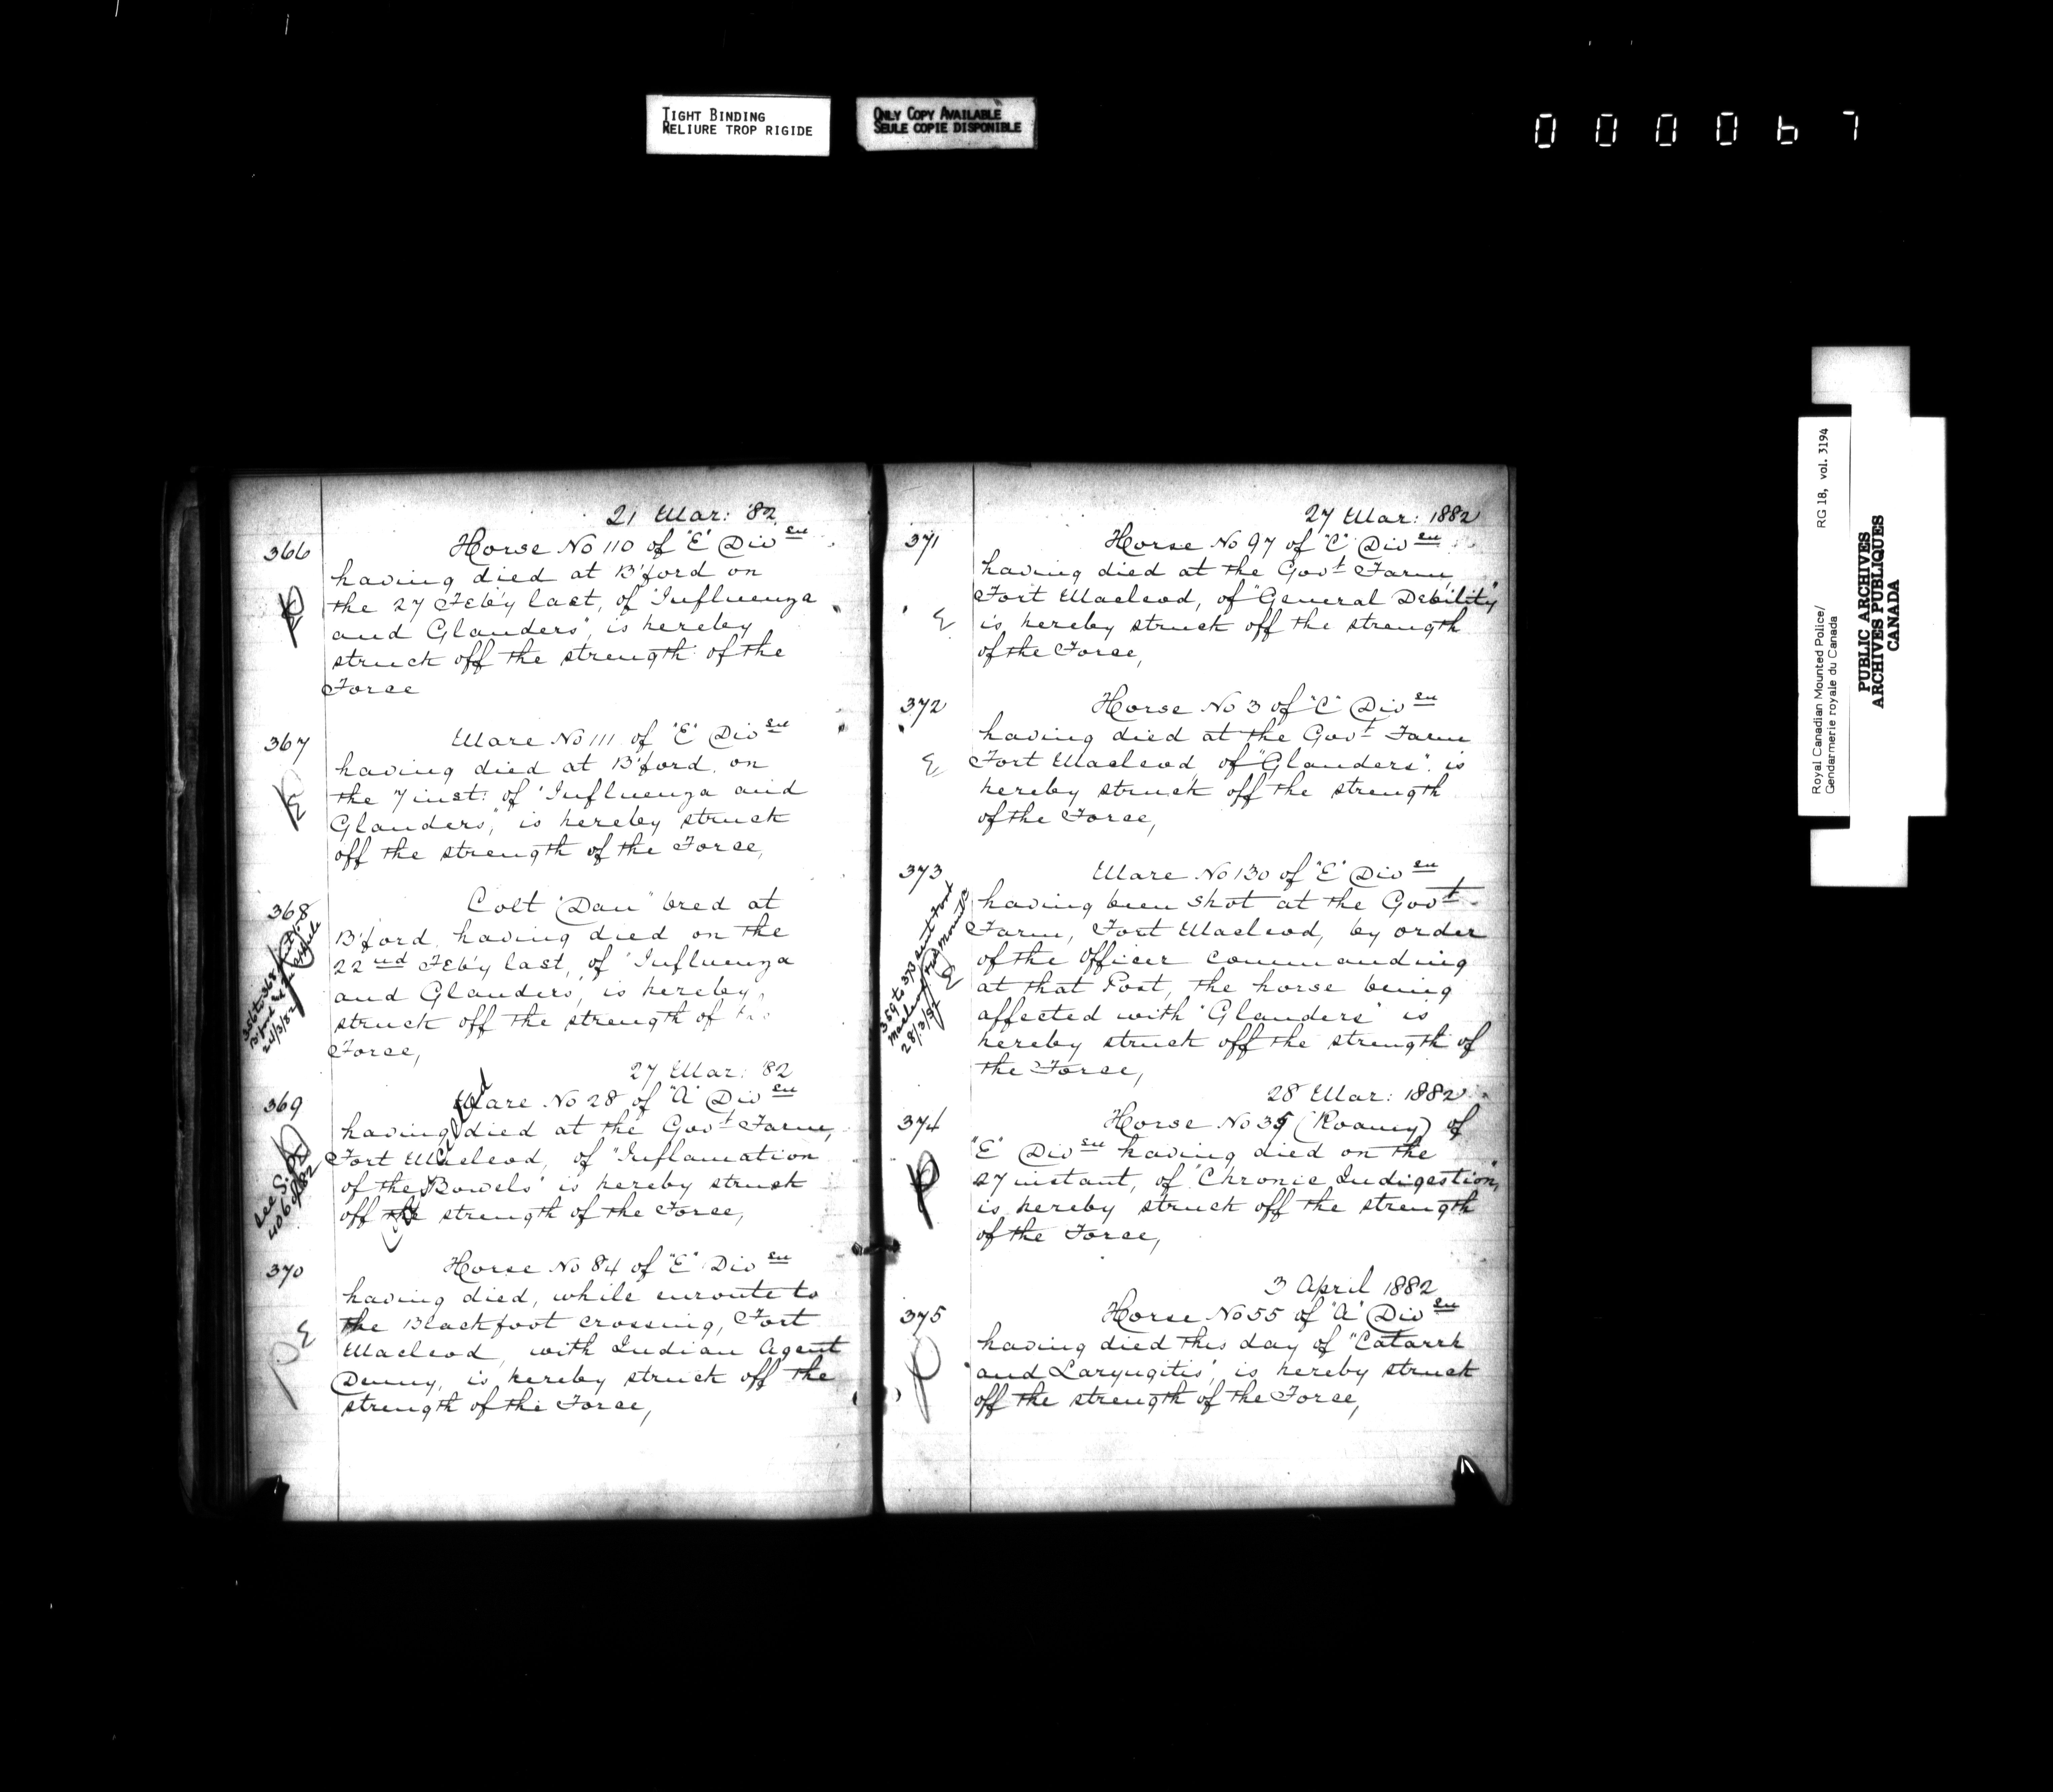 TIGHT BINDING
RELIURE TROP RIGIDE
ONLY COPY AVAILABLE
SEULE COPIE DISPONIBLE
000067
21 Mar: '82
366 Horse No 110 of "E" Divsn
having died at B'ford on
the 27 Feb'y last, of "Influenza
and Glanders", is hereby
struck off the strength of the
Force
367 Mare No 111 of "E" Divsn
having died at B'ford on
the 7 inst: of "Influenza and
Glanders," is hereby struck
off the strength of the Force,
368 Colt "Dan" bred at
B'ford, having died on the
22nd Feb'y last, of "Influenza
and Glanders", is hereby,
struck off the strength of
Force,
356 to 368
24/3/82
27 Mar: '82
369 Mare No 28 of "A" Divsn
having died at the Govt Farm,
Fort Macleod, of "Inflamation
of the Bowels" is hereby struck
off the strength of the Force,
Cancelled
see S.O.
406 of 82
370 Horse No 84 of "E" Divsn
having died, while enroute to
the Blackfoot crossing, Fort
Macleod, with Indian Agent
Denny, is hereby struck off the
strength of the Force,
E
27 Mar: 1882
371 Horse No 97 of "C" Divsn
having died at the Govt Farm,
Fort Macleod, of "General Debility"
is hereby struck off the strength
of the Force,
E
372 Horse No 3 of "C" Divsn
having died at the Govt Farm
Fort Macleod, of "Glanders". is
hereby struck off the strength
of the Force,
E
373 Mare No 130 of "E" Divsn
having been shot at the Govt
Farm, Fort Macleod, by order
of the Officer commanding
at that Post, the horse being
affected with "Glanders" is
hereby struck off the strength of
the Force,
359 to 373 sent Fort
Macleod
28/3/82
28 Mar: 1882
374 Horse No 35 (Roaney) of
"E" Divsn having died on the
27 instant, of "Chronic Indigestion,"
is hereby struck off the strength
of the Force,
3 April 1882
375 Horse No 55 of "A" Divsn
having died this day of "Catarrh
and Laryngitis", is hereby struck
off the strength of the Force,
Royal Canadian Mounted Police/
Gendarmerie royale du Canada
RG 18, vol. 3194
PUBLIC ARCHIVES
ARCHIVES PUBLIQUES
CANADA